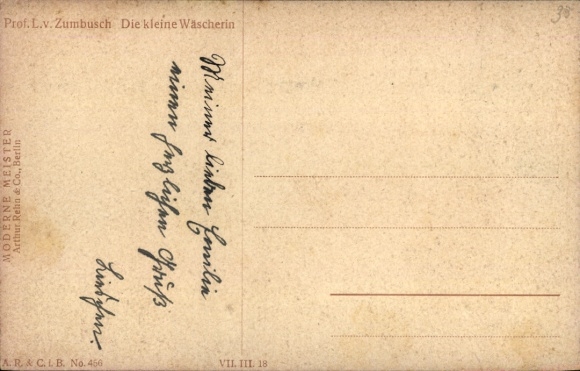 Prof. L. v. Zumbusch Die kleine Wäscherin
98
MODERNE MEISTER
Arthur Rehn & Co., Berlin
Meiner lieben Emilie
einen herzlichen Gruß
A. R. & C. i. B. No. 466
VII. III. 18